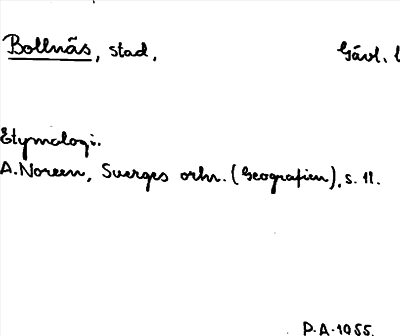 Bollnäs, stad. Gävl. l
Etymologi.
A. Noreen, Sverges ortn. (Geografien), s. 11.
P.A. 1955.